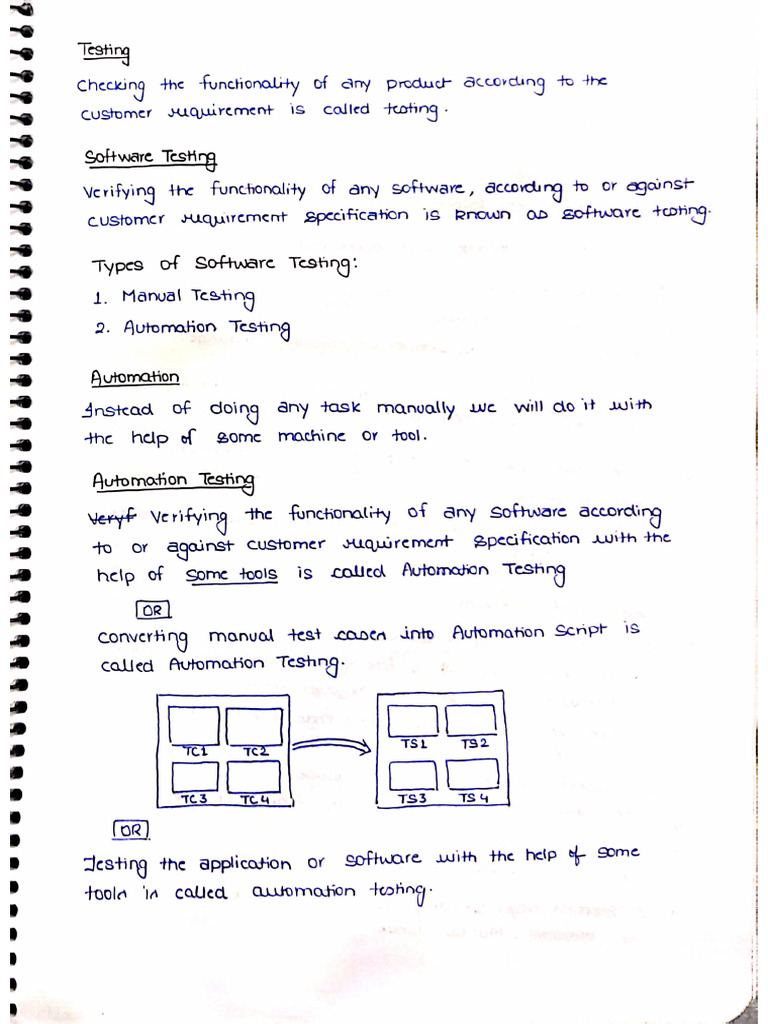 Testing
Checking the functionality of any product according to the
customer requirement is called testing.
Software Testing
Verifying the functionality of any software, according to or against
customer requirement specification is known as software testing.
Types of Software Testing:
1. Manual Testing
2. Automation Testing
Automation
Instead of doing any task manually we will do it with
the help of some machine or tool.
Automation Testing
Veryf Verifying the functionality of any software according
to or against customer requirement specification with the
help of some tools is called Automation Testing
OR
converting manual test cases into Automation Script is
called Automation Testing.
TC1 TC2 TS1 TS2
TC3 TC4 TS3 TS4
OR
Testing the application or software with the help of some
tools is called automation testing.